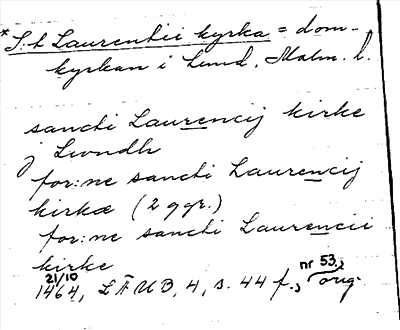 *S:t Laurentii kyrka = dom-
kyrkan i Lund, Malm. l.
sancti Laurencij kirke
j Lwndh
for:ne sancti Laurencij
kirkæ (2 ggr.)
for:ne sancti Laurencii
kirke
21/10 1464, LÄUB, 4, s. 44 f., nr 53, orig.